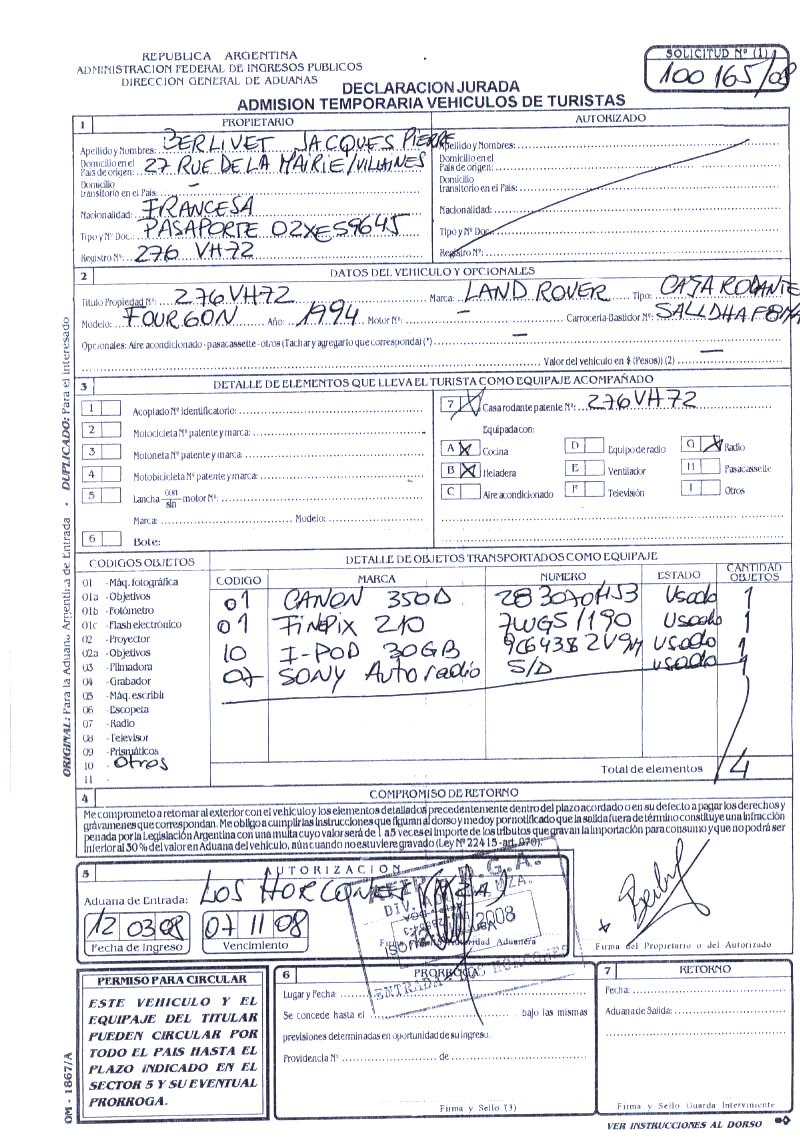 REPUBLICA ARGENTINA
ADMINISTRACION FEDERAL DE INGRESOS PUBLICOS
DIRECCION GENERAL DE ADUANAS
SOLICITUD Nº (1)
100165/08
DECLARACION JURADA
ADMISION TEMPORARIA VEHICULOS DE TURISTAS
1 PROPIETARIO AUTORIZADO
Apellido y Nombres: BERLIVET JACQUES PIERRE Apellido y Nombres:
Domicilio en el País de origen: 27 RUE DE LA MAIRIE/VILLAINES Domicilio en el País de origen:
Domicilio transitorio en el País: – Domicilio transitorio en el País:
Nacionalidad: FRANCESA Nacionalidad:
Tipo y Nº Doc.: PASAPORTE 02XE59645 Tipo y Nº Doc.:
Registro Nº: 276 VH72 Registro Nº:
2 DATOS DEL VEHICULO Y OPCIONALES
Titulo Propiedad Nº: 276VH72 Marca: LAND ROVER Tipo: CASA RODANTE
Modelo: FOURGON Año: 1994 Motor Nº: – Carrocería-Bastidor Nº:
Opcionales: Aire acondicionado - pasacassette - otros (Tachar y agregar lo que corresponda) (*) –
Valor del vehículo en $ (Pesos)) (2) –
3 DETALLE DE ELEMENTOS QUE LLEVA EL TURISTA COMO EQUIPAJE ACOMPAÑADO
1 Acoplado Nº Identificatorio: 7 X Casa rodante patente Nº: 276VH72
2 Motocicleta Nº patente y marca: Equipada con:
3 Motoneta Nº patente y marca: A X Cocina D Equipo de radio G X Radio
4 Motobicicleta Nº patente y marca: B X Heladera E Ventilador H Pasacassette
5 Lancha con/sin motor Nº: C Aire acondicionado F Televisión I Otros
Marca: Modelo:
6 Bote:
CODIGOS OBJETOS DETALLE DE OBJETOS TRANSPORTADOS COMO EQUIPAJE
CODIGO MARCA NUMERO ESTADO CANTIDAD OBJETOS
01 -Máq. fotográfica
01a -Objetivos
01b -Fotómetro
01c -Flash electrónico
02 -Proyector
02a -Objetivos
03 -Filmadora
04 -Grabador
05 -Máq. escribir
06 -Escopeta
07 -Radio
08 -Televisor
09 -Prismáticos
10 -Otros
11 -
01 CANON 350D Usado 1
01 FINEPIX 210 7WGS1190 Usado 1
10 I-POD 30GB usado 1
07 SONY Auto radio S/D usado 1
Total de elementos 4
4 COMPROMISO DE RETORNO
Me comprometo a retornar al exterior con el vehículo y los elementos detallados precedentemente dentro del plazo acordado o en su defecto a pagar los derechos y
gravámenes que correspondan. Me obligo a cumplir las instrucciones que figuran al dorso y me doy por notificado que la salida fuera de término constituye una infracción
penada por la Legislación Argentina con una multa cuyo valor será de 1 a 5 veces el importe de los tributos que gravan la importación para consumo y que no podrá ser
inferior al 30% del valor en Aduana del vehículo, aún cuando no estuviere gravado (Ley Nº 22415-art. 970).
5 AUTORIZACION
Aduana de Entrada: LOS HORCONES (MZA)
12 03 08 07 11 08
Fecha de Ingreso Vencimiento
Firma del Propietario o del Autorizado
PERMISO PARA CIRCULAR
ESTE VEHICULO Y EL
EQUIPAJE DEL TITULAR
PUEDEN CIRCULAR POR
TODO EL PAIS HASTA EL
PLAZO INDICADO EN EL
SECTOR 5 Y SU EVENTUAL
PRORROGA.
6 PRORROGA
Lugar y Fecha:
Se concede hasta el bajo las mismas
previsiones determinadas en oportunidad de su ingreso.
Providencia Nº de
Firma y Sello (3)
7 RETORNO
Fecha:
Aduana de Salida:
Firma y Sello Guarda Interviniente
VER INSTRUCCIONES AL DORSO
OM - 1867/A
ORIGINAL: Para la Aduana Argentina de Entrada • DUPLICADO: Para el interesado